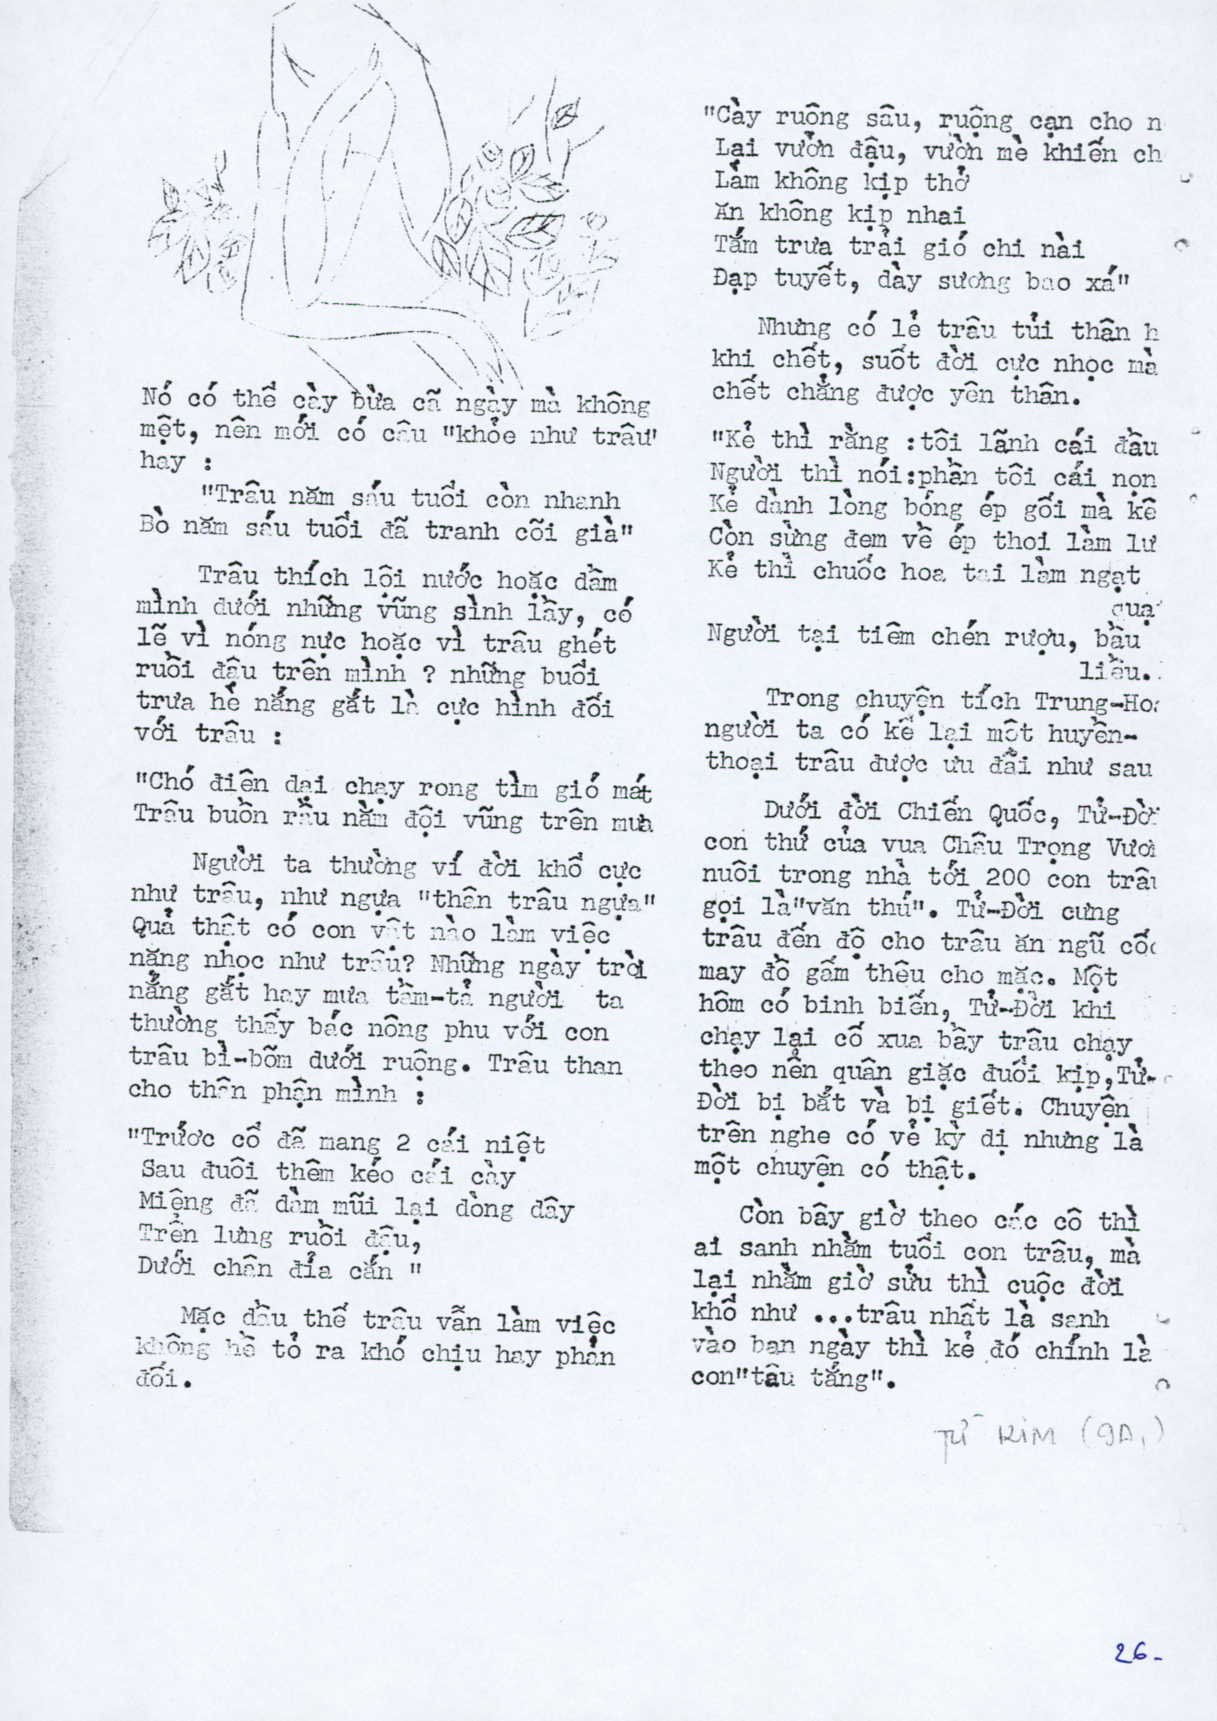 Nó có thể cày bừa cã ngày mà không
mệt, nên mới có câu "khỏe như trâu"
hay :
"Trâu năm sáu tuổi còn nhanh
Bò năm sáu tuổi đã tranh cõi già"
Trâu thích lội nước hoặc dầm
mình dưới những vũng sình lầy, có
lẽ vì nóng nực hoặc vì trâu ghét
ruồi đậu trên mình ? những buổi
trưa hè nắng gắt là cực hình đối
với trâu :
"Chó điên dại chạy rong tìm gió mát
Trâu buồn rầu nằm đội vũng trên mưa
Người ta thường ví đời khổ cực
như trâu, như ngựa "thân trâu ngựa"
Quả thật có con vật nào làm việc
nặng nhọc như trâu? Những ngày trời
nắng gắt hay mưa tầm-tả người ta
thường thấy bác nông phu với con
trâu bì-bõm dưới ruộng. Trâu than
cho thân phận mình :
"Trước cổ đã mang 2 cái niệt
Sau đuôi thêm kéo cái cày
Miệng đã dàm mũi lại dòng dây
Trên lưng ruồi đậu,
Dưới chân đỉa cắn "
Mặc dầu thế trâu vẫn làm việc
không hề tỏ ra khó chịu hay phản
đối.
"Cày ruộng sâu, ruộng cạn cho
Lại vườn đậu, vườn mè khiến
Làm không kịp thở
Ăn không kịp nhai
Tắm trưa trải gió chi nài
Đạp tuyết, dày sương bao xá"
Nhưng có lẻ trâu tủi thân
khi chết, suốt đời cực nhọc mà
chết chẳng được yên thân.
"Kẻ thì rằng :tôi lãnh cái đầu
Người thì nói:phần tôi cái nọn
Kẻ dành lòng bóng ép gối mà kê
Còn sừng đem về ép thoi làm
Kẻ thì chuốc hoa tai làm ngạt
quạ
Người tại tiêm chén rượu, bầu
liều.
Trong chuyện tích Trung-Hoa
người ta có kể lại một huyền-
thoại trâu được ưu đãi như sau
Dưới đời Chiến Quốc, Tử-Đời
con thứ của vua Châu Trọng Vươn
nuôi trong nhà tới 200 con trâu
gọi là"văn thú". Tử-Đời cưng
trâu đến độ cho trâu ăn ngũ cốc
may đồ gấm thêu cho mặc. Một
hôm có binh biến, Tử-Đời khi
chạy lại cố xua bầy trâu chạy
theo nên quân giặc đuổi kịp,Tử-
Đời bị bắt và bị giết. Chuyện
trên nghe có vẻ kỳ dị nhưng là
một chuyện có thật.
Còn bây giờ theo các cô thì
ai sanh nhằm tuổi con trâu, mà
lại nhằm giờ sửu thì cuộc đời
khổ như ...trâu nhất là sanh
vào ban ngày thì kẻ đó chính là
con"tâu tắng".
TỬ KIM (9A1)
26-